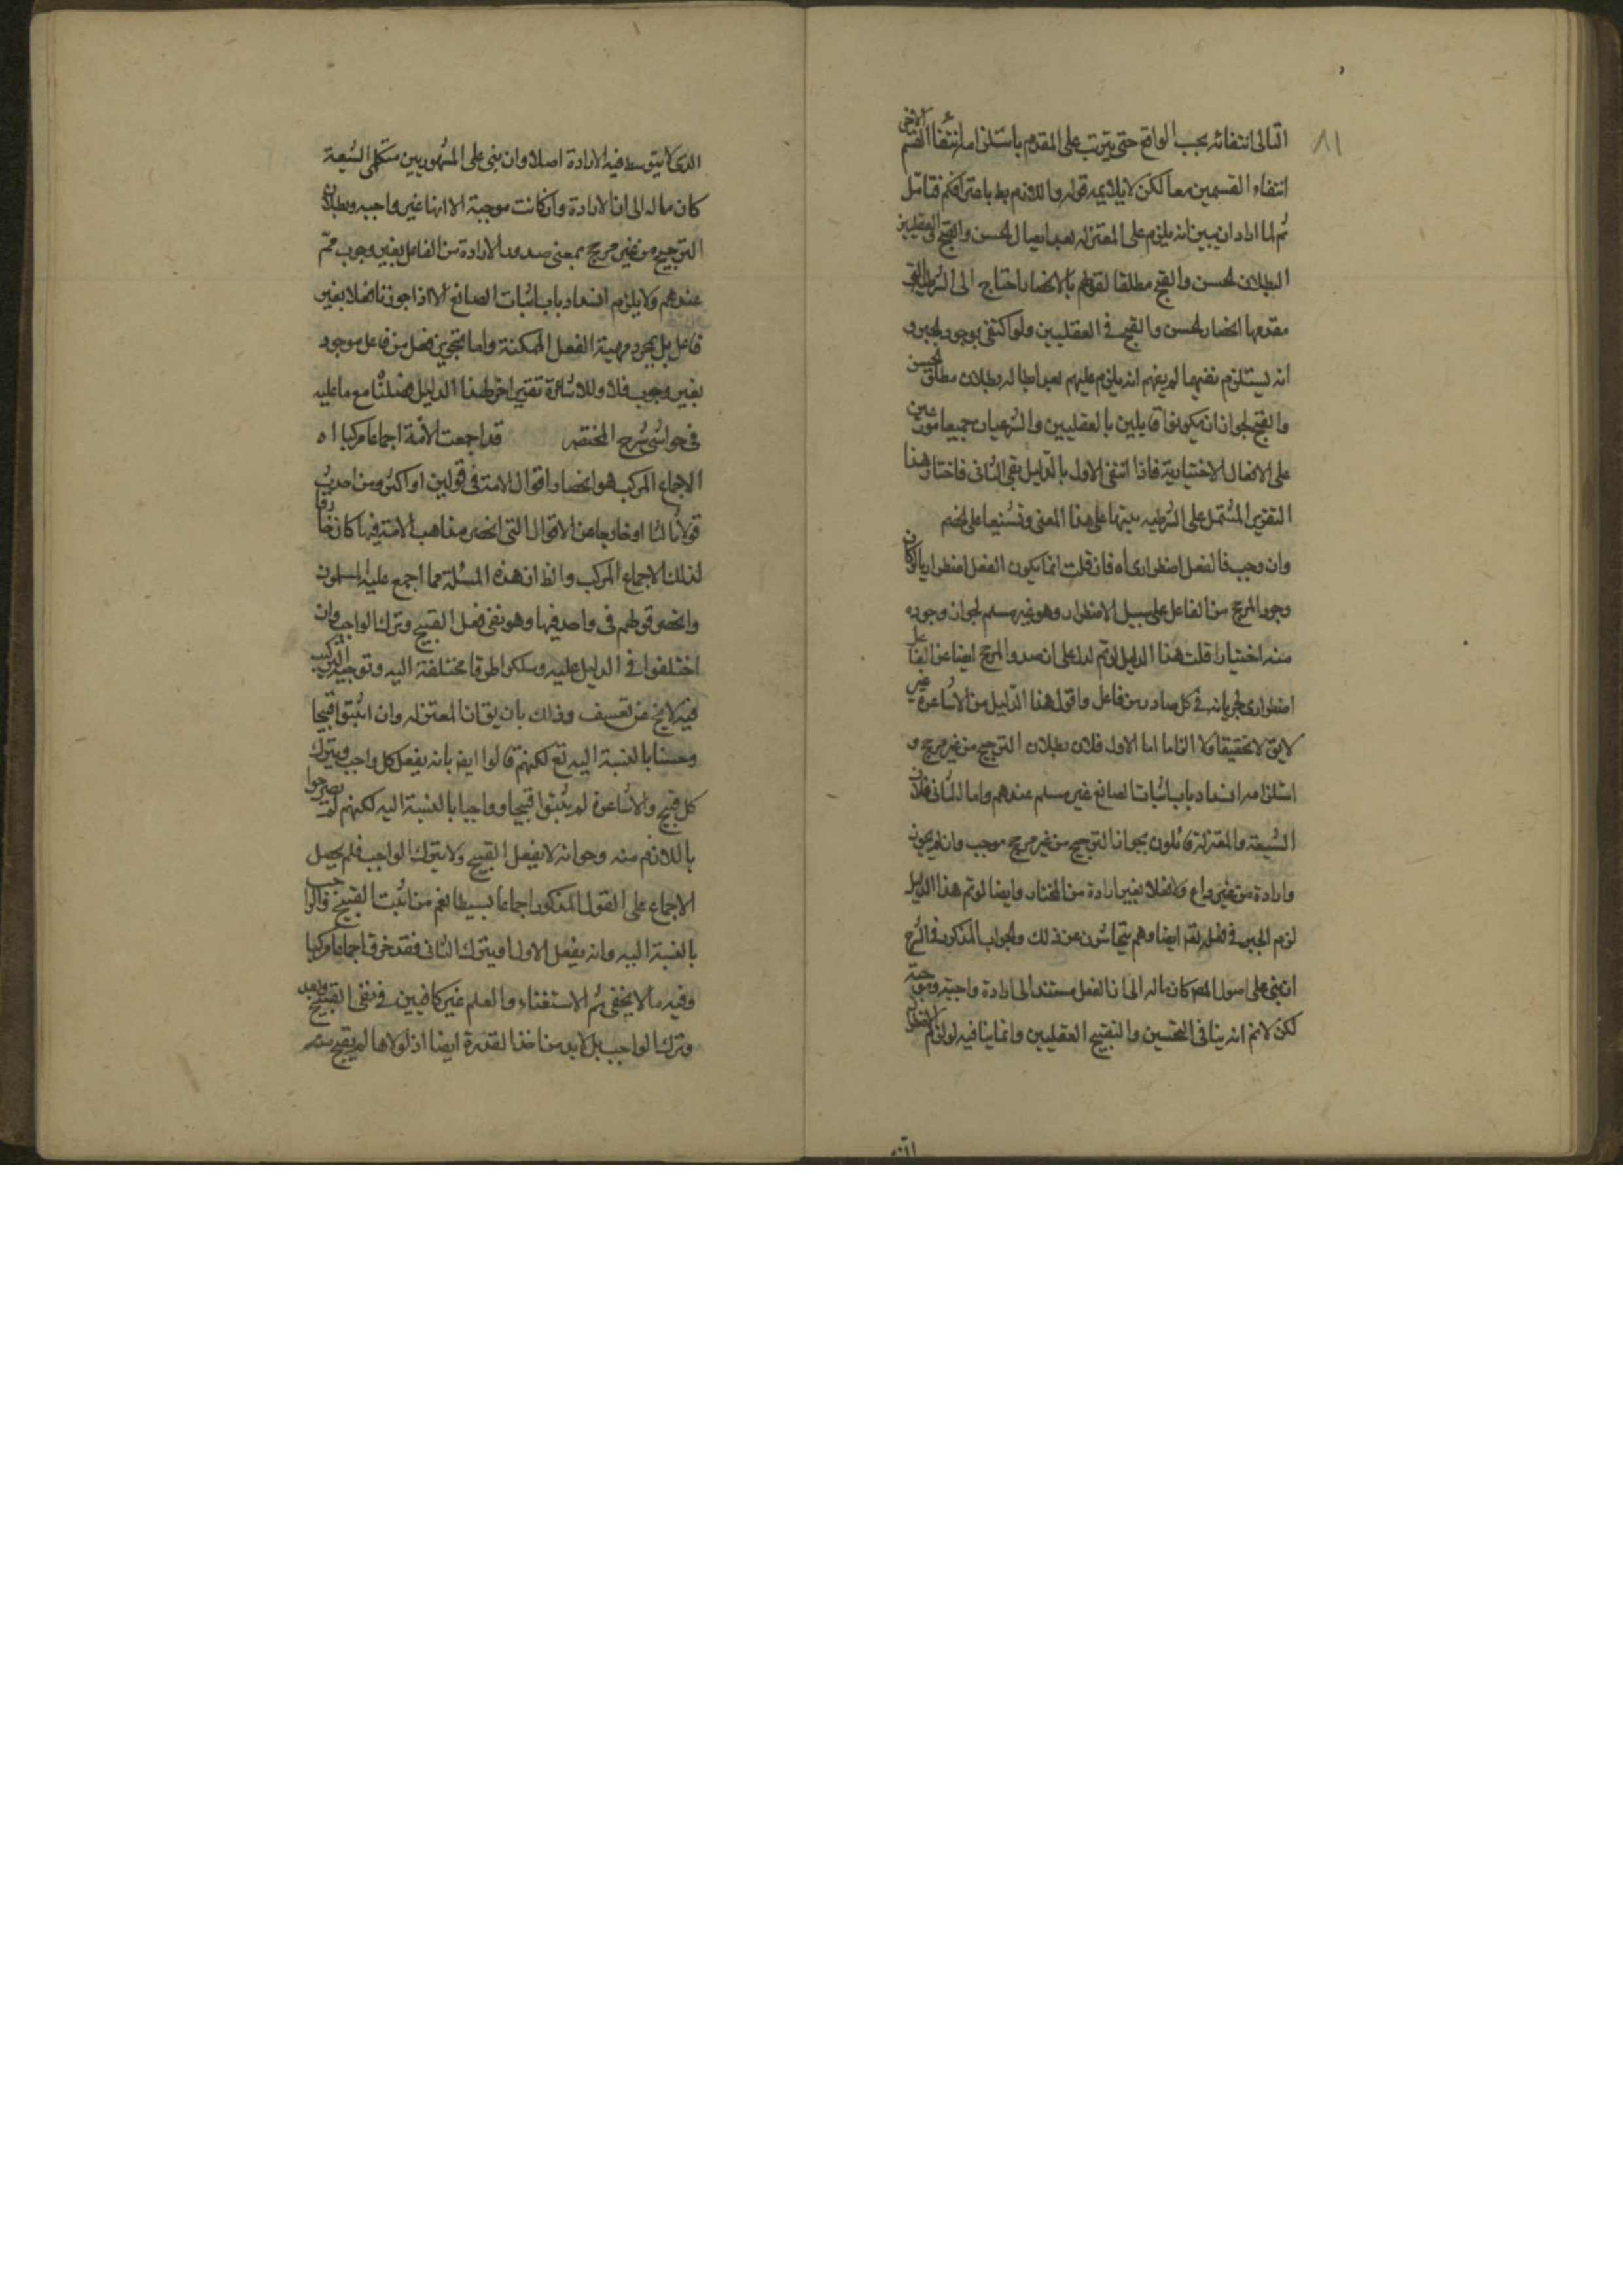 ٨١
التالى انتفائه بحسب الواقع حتى يترتب على المقدم باستلزامه انتفاء القسم الاخر
انتفاء القسمين معا لكن لا يلايمه قوله واللازم بط باعترافكم فتامل
ثم لما اراد ان يبين انه يلزم على المعتزله بعد ابطال الحسن والقبح العقليين
البطلان الحسن والقبح مطلقا لقولهم بالانحصار احتاج الى الشرطية التى
مقدمها انحصار الحسن والقبح فى العقليين ولو اكتفى بوجود الجبر و
انه يستلزم نفيهما لم يفهم انه يلزم عليهم بعد ابطاله بطلان مطلق الحسن
والقبح لجواز ان يكونوا قايلين بالعقليين والشرعيان جميعا
على الافعال الاختيارية فاذا انتفى الاول بالدليل بقى الثانى فاختار هذا
التقرير المشتمل على الشرطيه تنبيها على هذا المعنى وتشنيعا على الخصم
وان وجب فالفعل اضطرارى اه فان قلت انما يكون الفعل اضطراريا لو كان
وجود المرجح من الفاعل على سبيل الاضطرار وهو غير مسلم لجواز وجوده
منه اختيارا قلت هذا الدليل لو تم لدل على ان صدور المرجح ايضا عن الفاعل
اضطرارى لجريانه فى كل صادر من فاعل واقول هذا الدليل من الاشاعرة غير
لايق لا تحقيقا ولا الزاما اما الاول فلان بطلان الترجيح من غير مرجح و
استلزامه انسداد باب اثبات الصانع غير مسلم عندهم واما الثانى فلان
الشيعة والمعتزلة قائلون بجواز الترجيح من غير مرجح موجب وان لم يجوزوا
وارادة من غير داع ولا فعلا بغير ارادة من المختار وايضا لو تم هذا الدليل
لزم الجبر فى فعله تعالى ايضا وهم يتحاشون عن ذلك والجواب المذكور فى الشرح
ان بنى على اصول المص كان ماله الى ان الفعل مستند الى ارادة واجبة وموجبة
لكن لا نم انه ينافى التحسين والتقبيح العقليين وانما ينافيه لو لزم الاضطرار
الذى لا يتوسط فيه الارادة اصلا وان بنى على المشهور بين متكلمى الشيعة
كان ماله الى ان الارادة وان كانت موجبة الا انها غير واجبه وبطلان
الترجيح من غير مرجح بمعنى صدور الارادة من الفاعل بغير وجوب مم
عندهم ولا يلزم انسداد باب اثبات الصانع الا اذا جوزنا فعلا بغير
فاعل بل بمجرد مهية الفعل الممكنة واما تجويز فعل من فاعل موجود
بغير وجوب فلا وللاشاعرة تقرير اخر لهذا الدليل فصلناه مع ما عليه
فى حواشى شرح المختصر قد اجمعت الامة اجماعا مركبا اه
الاجماع المركب هو انحصار اقوال الامة فى قولين او اكثر ومن احدث
قولا ثالثا او خارجا من الاقوال التى انحصر مذاهب الامة فيها كان خارقا
لذلك الاجماع المركب والظ ان هذه المسئلة مما اجمع عليه المسلمون
وانحصر قولهم فى واحد فيها وهو نفى فعل القبيح وترك الواجب وان
اختلفوا فى الدليل عليه وسلكوا طرقا مختلفة اليه وتوجيه التركيب
فيه لا يخ عن تعسف وذلك بان يق ان المعتزله وان اثبتوا قبيحا
وحسنا بالنسبة اليه تع لكنهم قالوا ايض بانه يفعل كل واجب ويترك
كل قبيح والاشاعرة لم يثبتوا قبيحا وواجبا بالنسبة اليه لكنهم لم يصرحوا
باللازم منه وهو انه لا يفعل القبيح ولا يترك الواجب فلم يحصل
الاجماع على القول المذكور اجماعا بسيطا نعم من اثبت القبيح والواجب
بالنسبة اليه وانه يفعل الاول ويترك الثانى فقد خرق اجماعا مركبا
وفيه ما لا يخفى ثم الاستغناء والعلم غير كافيين فى نفى القبيح عنه
وترك الواجب بل لا بد من اخذ القدرة ايضا اذ لولاها لم يقبح منه